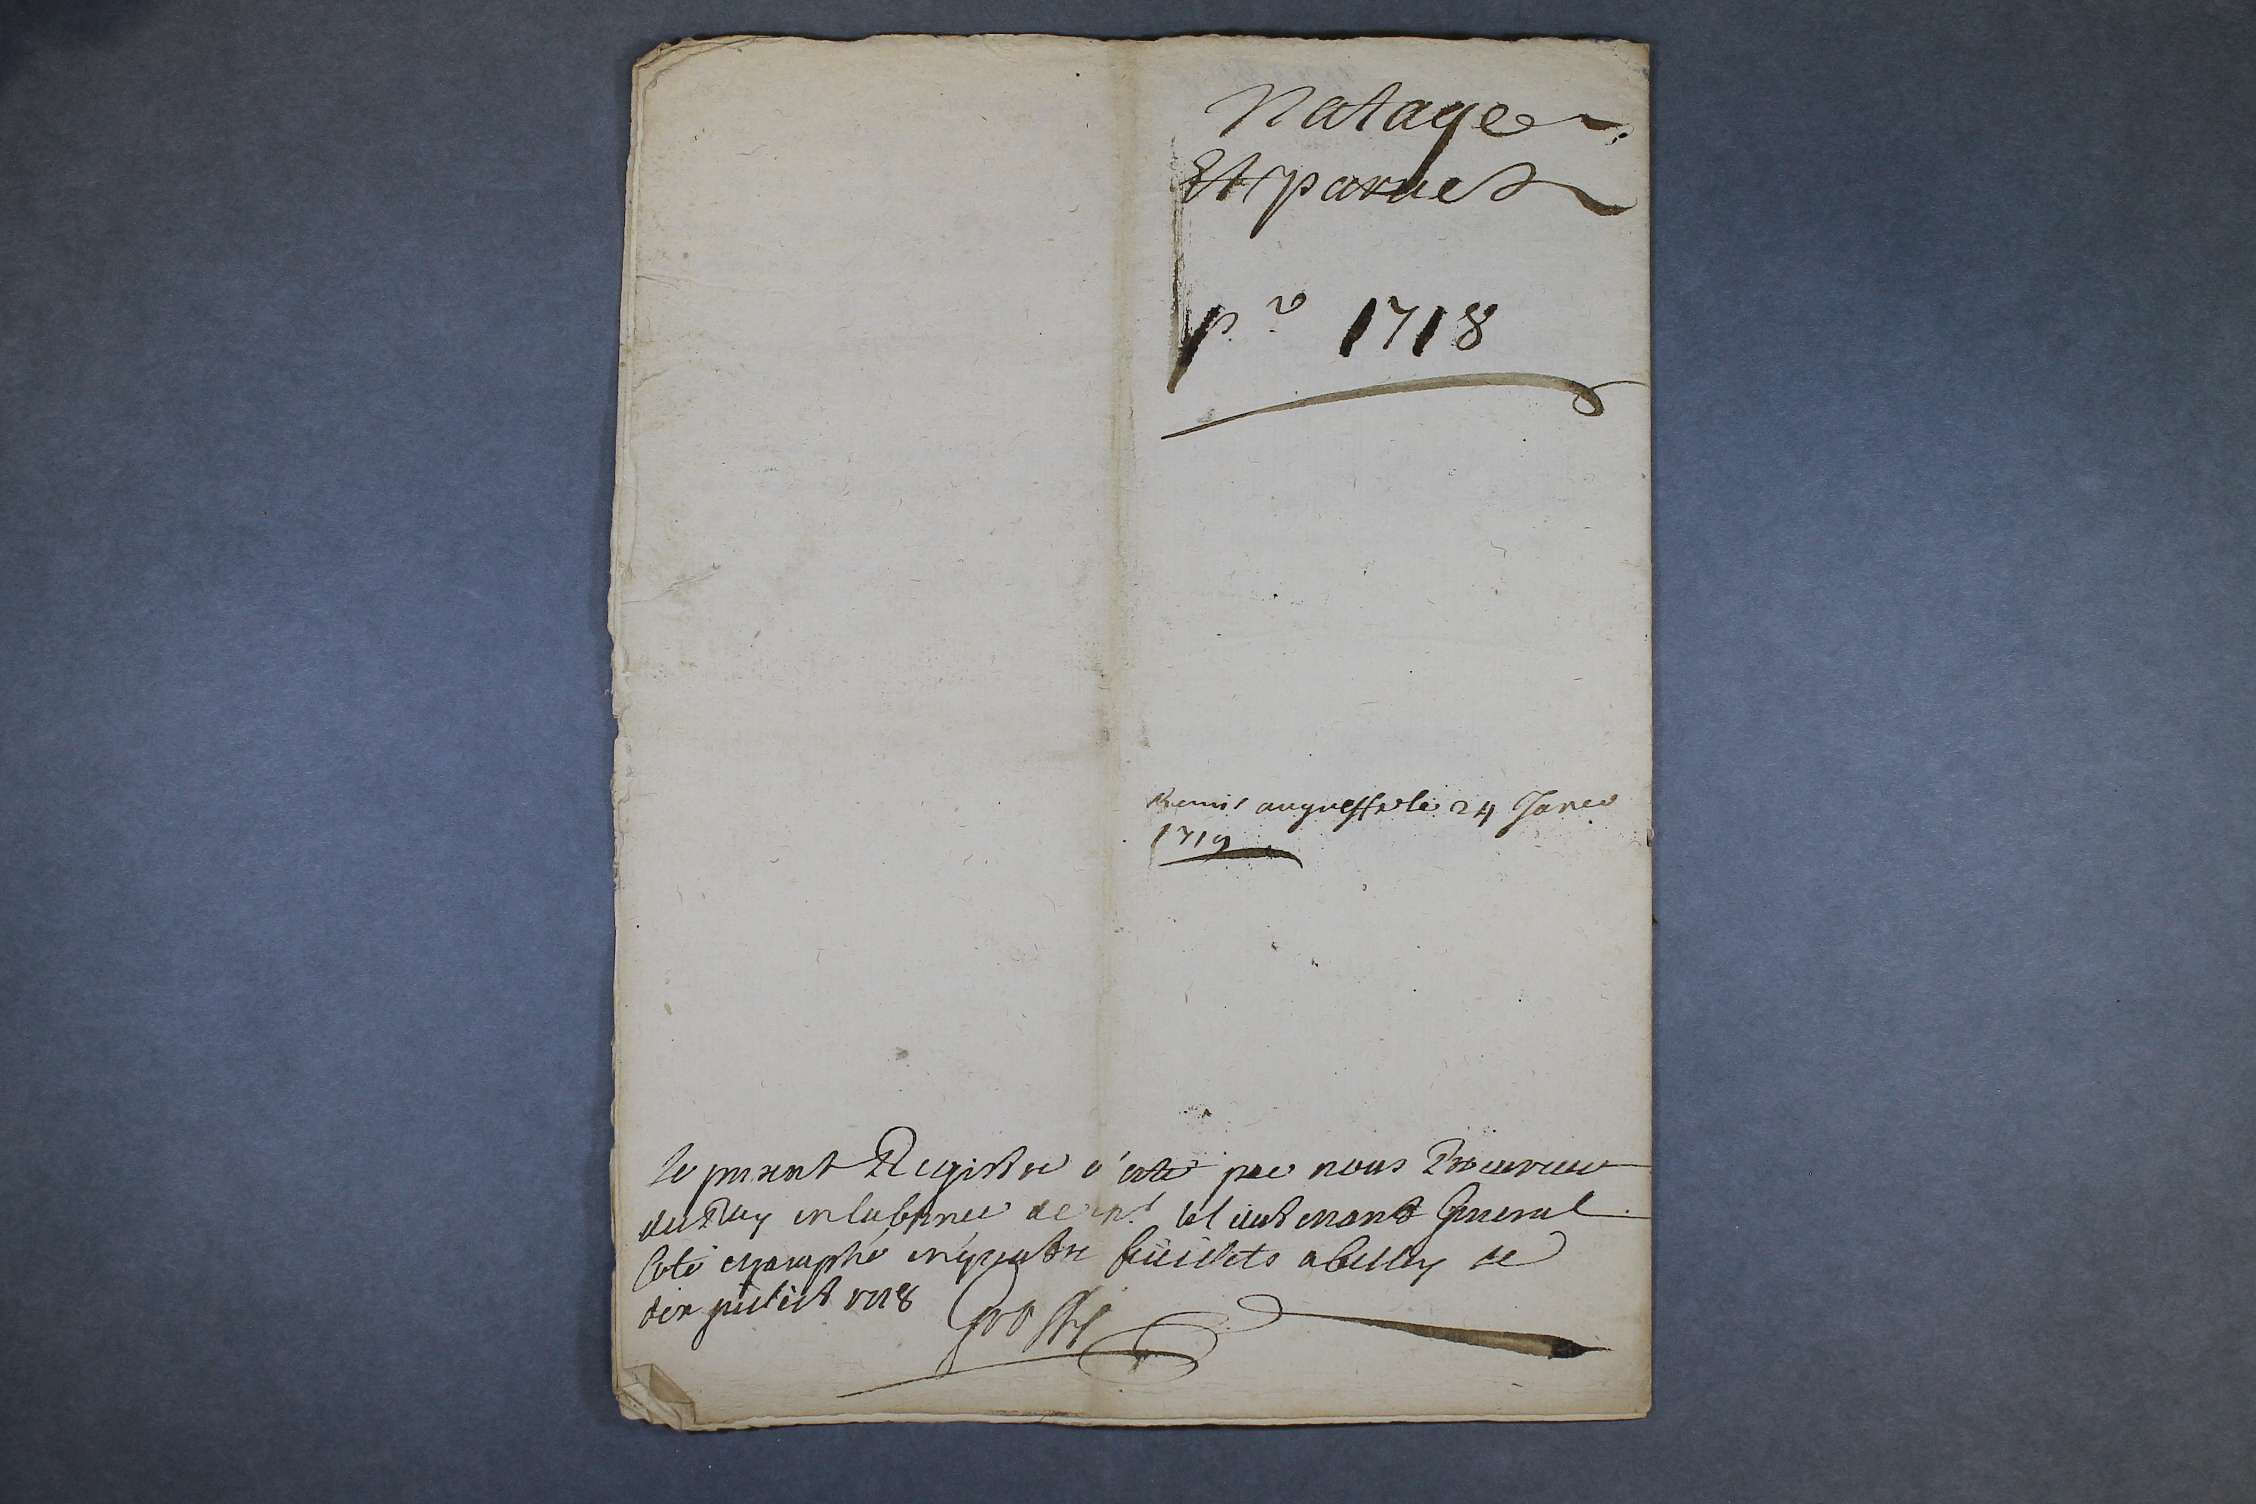 Natage
Et parves
pr 1718
Remis augreffe le 24 Janer
1719
le present Registre a été par nous Procureur
du Roy en labsence de mr le lieutenant General
Coté et paraphé en quatre feüillets a belley le
dix juillet 1718